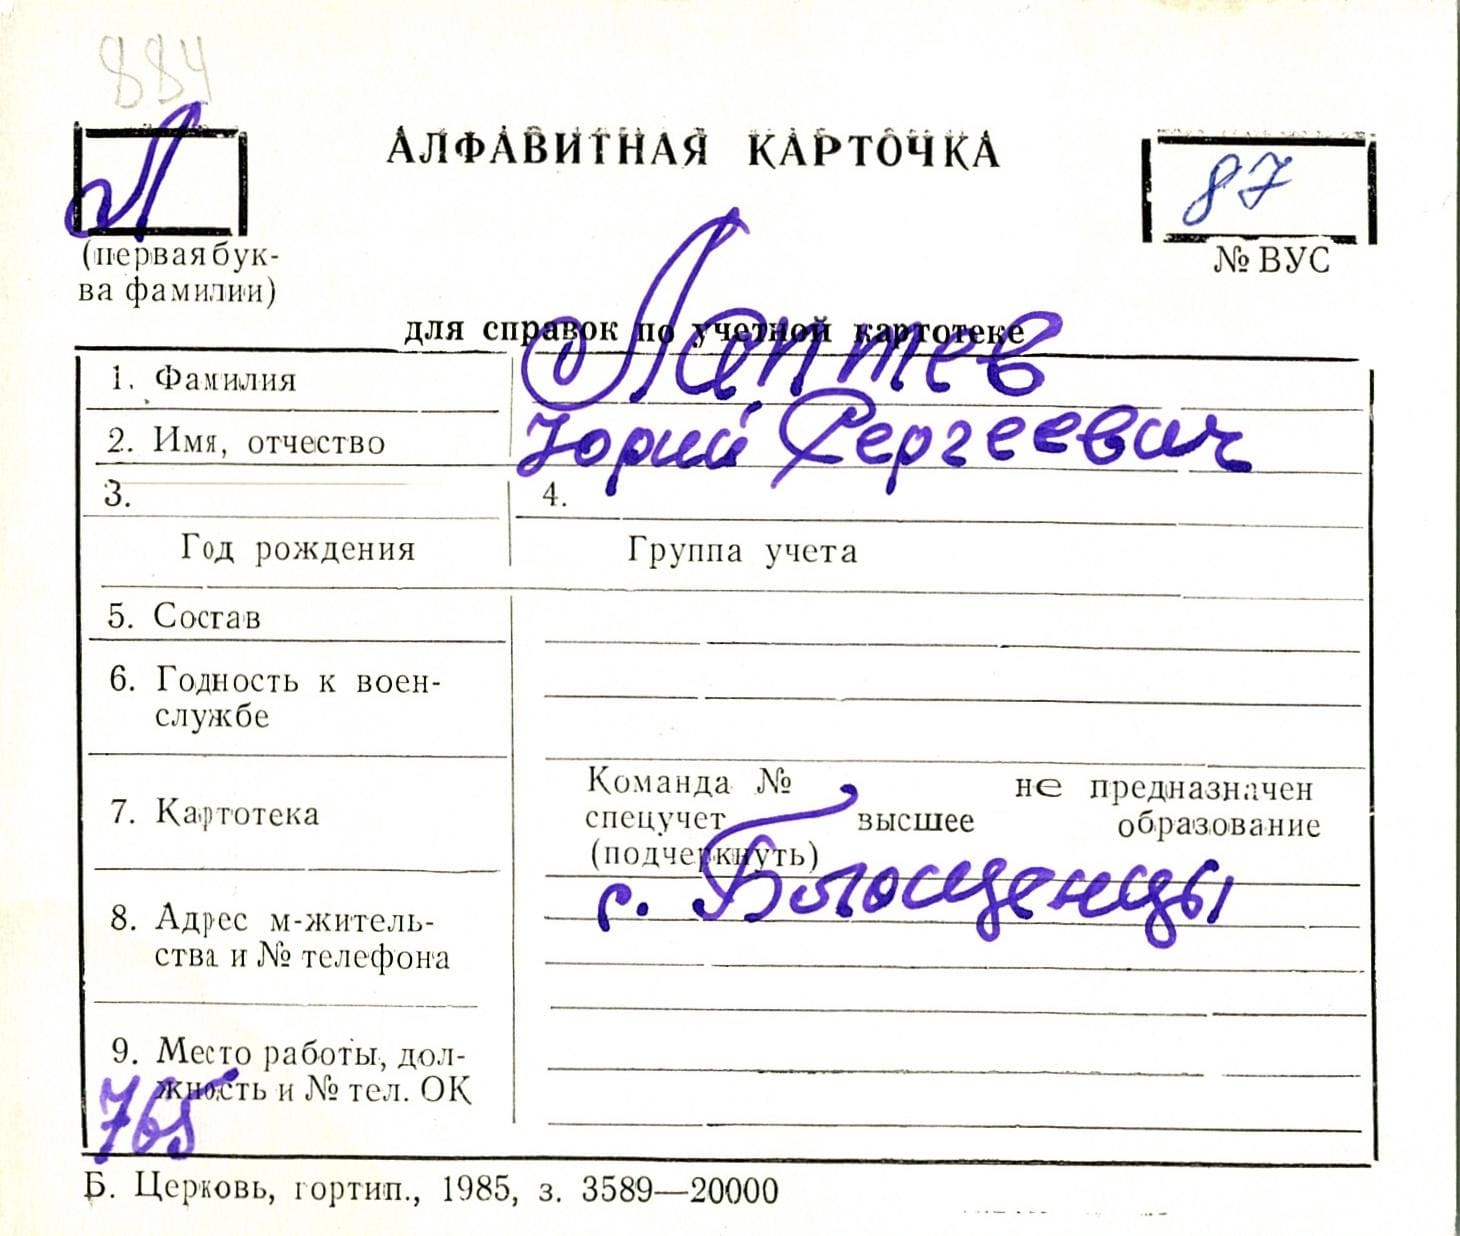 884
Л
АЛФАВИТНАЯ КАРТОЧКА
87
(первая бук-
ва фамилии)
№ ВУС
для справок по учетной картотеке
1. Фамилия
Лаптев
2. Имя, отчество
Юрий Сергеевич
3.
4.
Год рождения
Группа учета
5. Состав
6. Годность к воен-
службе
7. Картотека
Команда № не предназначен
спецучет высшее образование
(подчеркнуть)
8. Адрес м-житель-
ства и № телефона
с.
9. Место работы, дол-
жность и № тел. ОК
765
Б. Церковь, гортип., 1985, з. 3589—20000